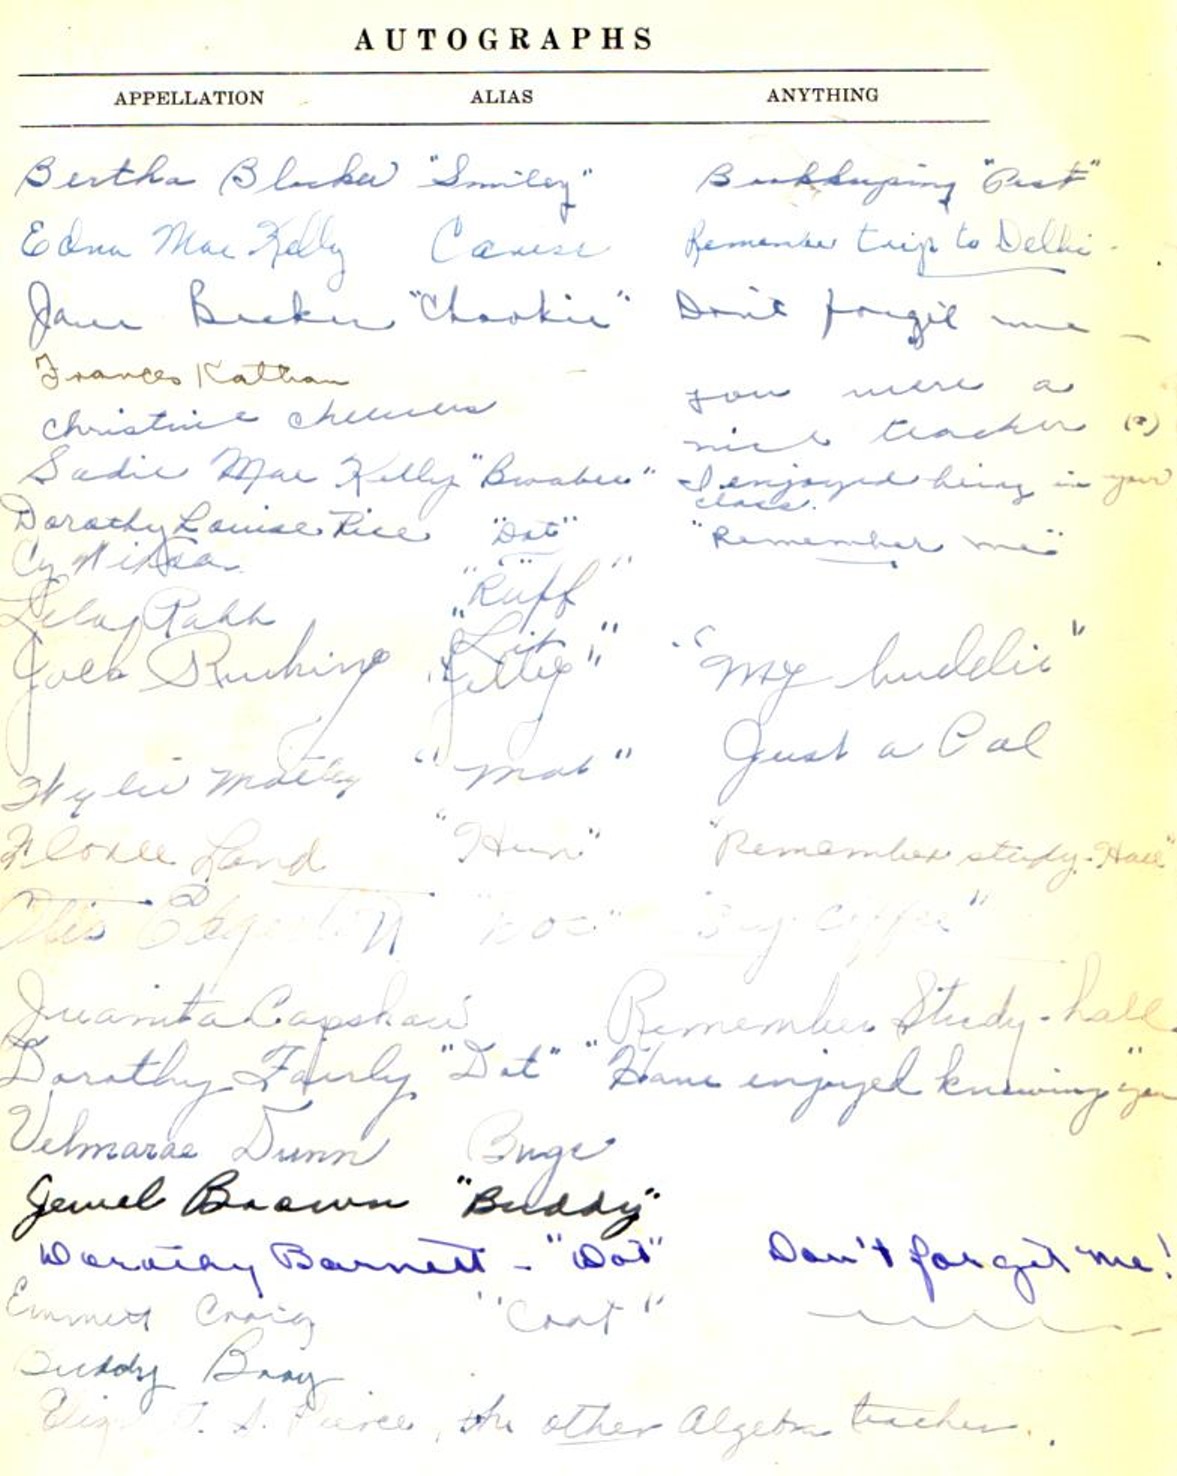 AUTOGRAPHS
APPELLATION ALIAS ANYTHING
Bertha Blocker "Smiley" Bookkeeping "Pest"
Edna Mae Kelly Remember trip to Delhi
Jane Becker "Chookie" Don't forget me
Frances Kathan
you were a
Christine nice teacher (?)
Sadie Mae Kelly I enjoyed being in your
class.
Dorothy Louise Rice "Dot" "Remember me"
Cy
"Ruff"
"My buddie"
Just a Pal
Wylie Motley "Mot"
Floree Land "Hun" "Remember study-Hall"
Otis "Doc"
Juanita Capshaw Remember Study-hall
Dorothy Fairly "Dot" "Have enjoyed knowing you"
Velmarae Dunn Buge
Jewel Brown "Buddy"
Dorothy Barnett - "Dot" Don't forget me!
Emmett Craig
Buddy Bray
Pierce, the other Algebra teacher.